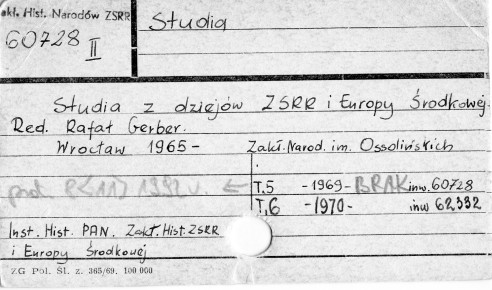 Zakł. Hist. Narodów ZSRR
60728 II
Studia
Studia z dziejów ZSRR i Europy Środkowej.
Red. Rafał Gerber.
Wrocław 1965 - Zakł. Narod. im. Ossolińskich
prot. 1992 r. ← T.5 -1969- BRAK inw. 60728
T.6 -1970- inw 62332
Inst. Hist. PAN. Zakł. Hist. ZSRR
i Europy Środkowej
ZG Pol. Śl. z. 365/69. 100 000